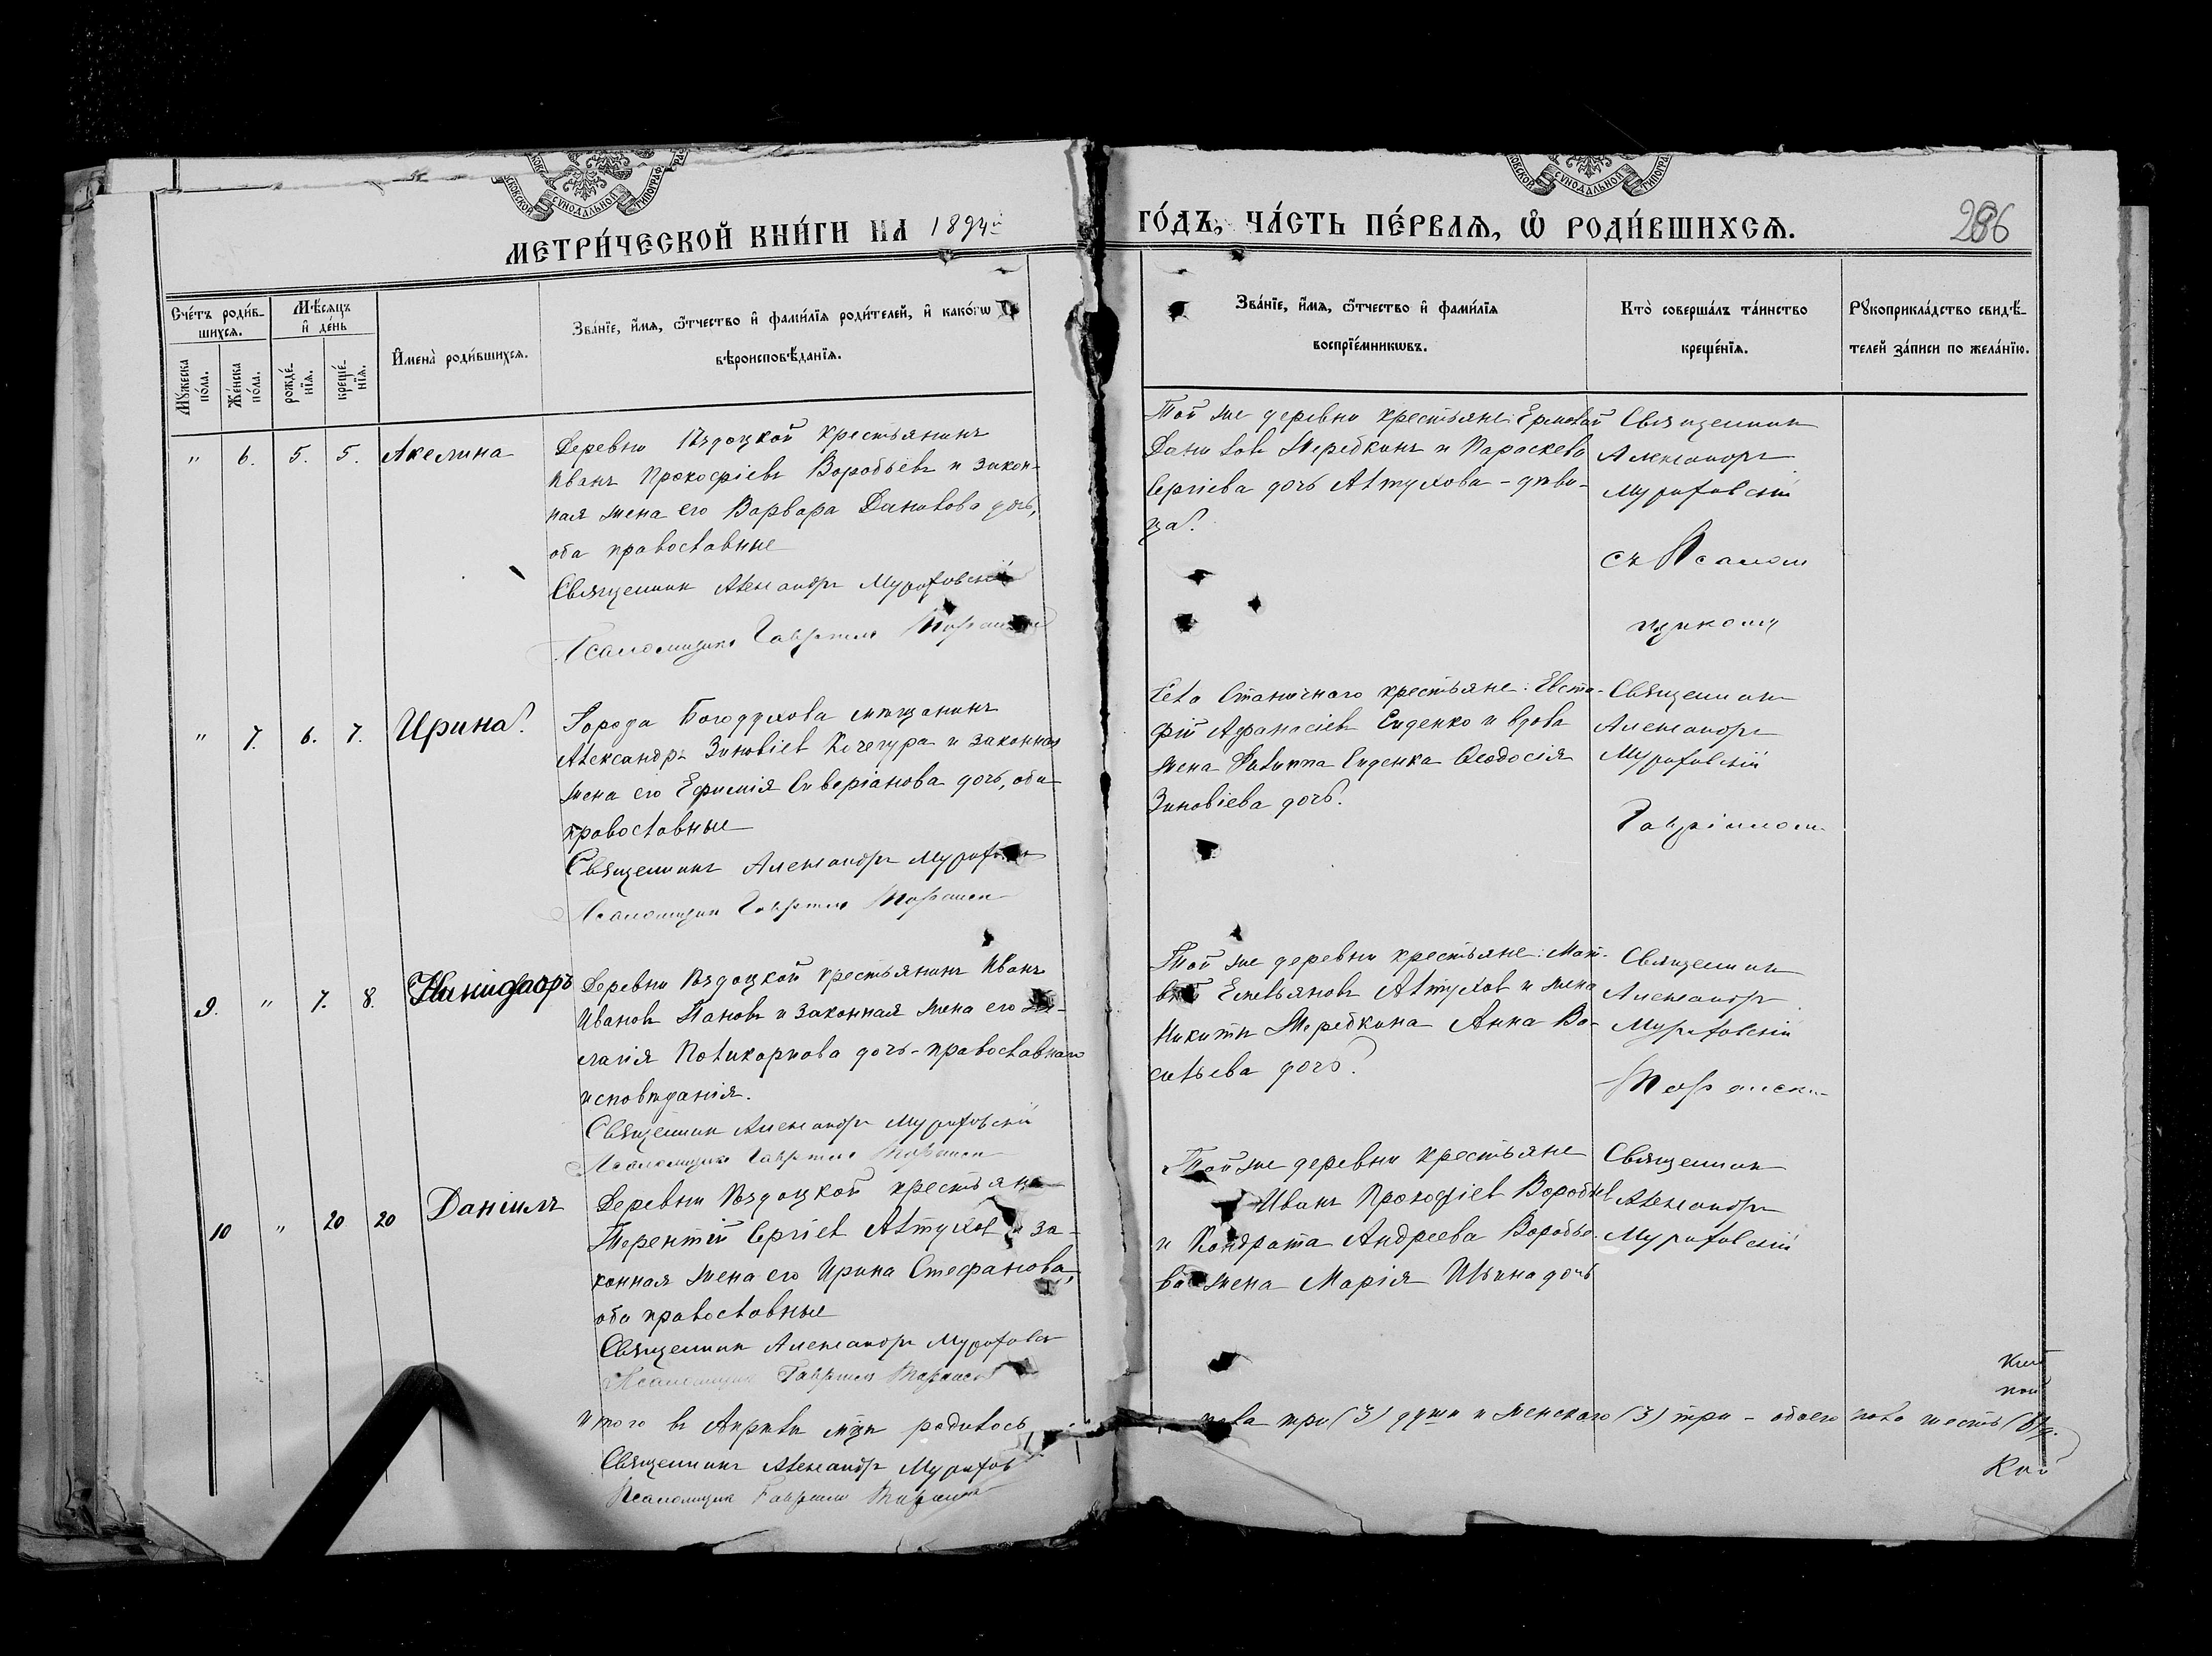 МЕТРИ́ЧЕСКОЙ КНИ́ГИ НА 1894й
ГО́ДЪ, ЧА́СТЬ ПЕ́РВАѦ, Ѡ҆ РОДИ́ВШИХСѦ.
286
Сче́тъ роди́в-
шихсѧ.
Мѣ́сѧцъ
и҆ де́нь
Мꙋ́жеска
по́ла.
Же́нска
по́ла.
рожде́-
нїѧ.
креще́-
нїѧ.
И҆мена̀ роди́вшихсѧ.
Зва́нїе, и҆́мѧ, ѻ҆́тчество и҆ фами́лїѧ роди́телей, и҆ како́гѡ
вѣроисповѣ́данїѧ.
Зва́нїе, и҆́мѧ, ѻ҆́тчество и҆ фами́лїѧ
воспрїе́мникѡвъ.
Кто̀ соверша́лъ та́инство
креще́нїѧ.
Рꙋкоприкла́дство свидѣ́-
телей за́писи по жела́нїю.
" 6. 5. 5. Акелина
Деревни крестьянинъ
Иванъ Прокофіевъ Воробьевъ и закон-
ная жена его Варвара Данилова дочь,
оба православные
Священникъ Александръ Мурафовскій
Псаломщикъ Гавріилъ
Той же деревни крестьяне: Ермолай
Данилов Жеребкинъ и Параскева
Сергіева дочь Автухова - дѣви-
ца.
Священник
Александръ
Мурафовскій
съ Псалом
щикомъ
" 7. 6. 7. Ирина.
Города Богодухова мѣщанинъ
Александръ Зиновіев Кочегура и законная
жена его Ефимія Сиверіанова дочь, оба
православные
Священникъ Александръ
Псаломщикъ Гавріилъ
Села Станичнаго крестьяне: Евста-
фій Афанасіевъ Сиденко и вдова
жена Сиденка Ѳеодосія
Зиновіева дочь.
Священник
Александръ
Мурафовскій
Гавріилом
9. " 7. 8. Никифоръ
Деревни крестьянинъ Иванъ
Ивановъ Пановъ и законная жена его
Поликарпова дочь - православнаго
исповѣданія.
Священник Александръ Мурафовскій
Псаломщикъ Гавріилъ
Той же деревни крестьяне: Мат-
вѣй Емельяновъ Автухов и жена
Никиты Жеребкина Анна Ва-
сильева дочь.
Священник
Александръ
Мурафовскій
10 " 20 20 Даніилъ
Деревни крестьяне
Терентій Сергіев Автухов и за-
конная жена его Ирина Стефанова,
оба православные
Священник Александръ
Псаломщик Гавріилъ
Той же деревни крестьяне
Иванъ Прокофіев Воробьев
и Кондрата Андреева Воробье-
ва жена Марія Ильина дочь
Священник
Александръ
Мурафовскій
Итого въ Апрѣлѣ мцѣ родилось
пола три (3) души и женскаго (3) три - обоего пола шесть (6)
Священникъ Александръ
Псаломщик Гавріилъ